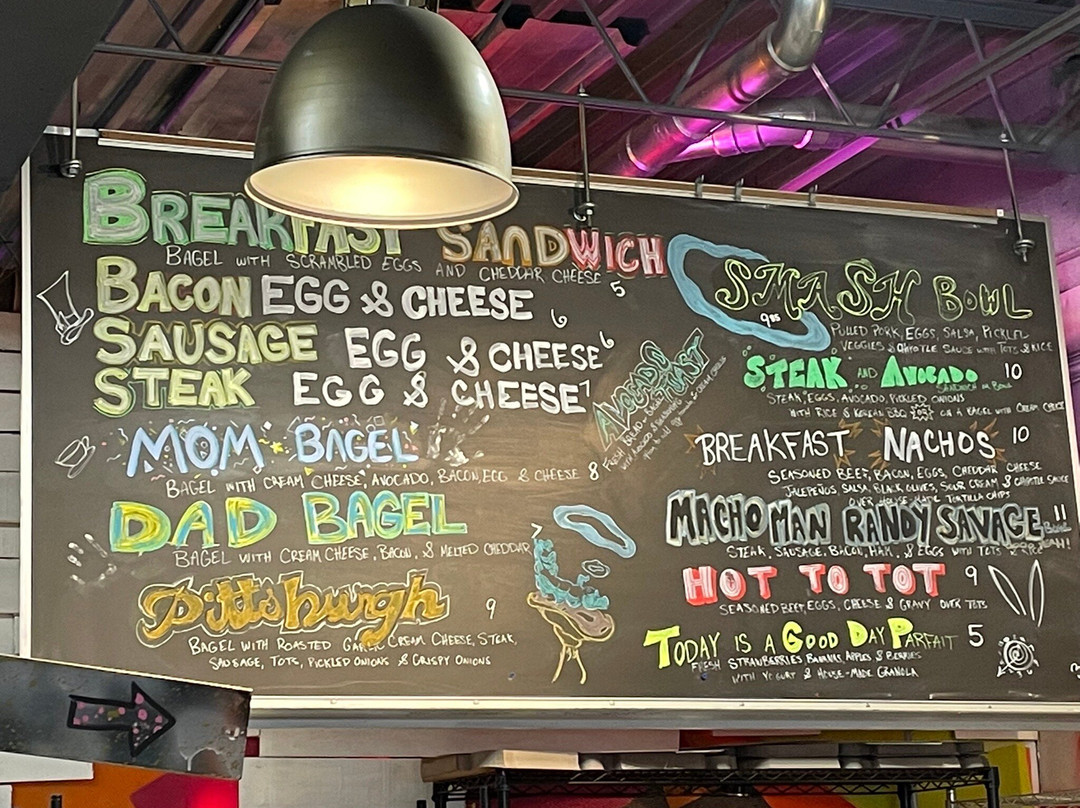 BREAKFAST SANDWICH
BAGEL WITH SCRAMBLED EGGS AND CHEDDAR CHEESE 5
BACON EGG & CHEESE 6
SAUSAGE EGG & CHEESE 6
STEAK EGG & CHEESE 7
MOM BAGEL
BAGEL WITH CREAM CHEESE, AVOCADO, BACON, EGG & CHEESE 8
DAD BAGEL
BAGEL WITH CREAM CHEESE, BACON, & MELTED CHEDDAR 7
Pittsburgh 9
BAGEL WITH ROASTED GARLIC CREAM CHEESE, STEAK,
SAUSAGE, TOTS, PICKLED ONIONS & CRISPY ONIONS
AVOCADO
BREAKFAST
FRESH
SMASH BOWL
PULLED PORK, EGGS, SALSA, PICKLED
VEGGIES & CHIPOTLE SAUCE WITH TOTS & RICE
STEAK AND AVOCADO 10
SANDWICH OR BOWL
STEAK, EGGS, AVOCADO, PICKLED ONIONS
WITH RICE & KOREAN BBQ OR ON A BAGEL WITH CREAM CHEESE
BREAKFAST NACHOS 10
SEASONED BEEF, BACON, EGGS, CHEDDAR CHEESE
JALEPEÑOS, SALSA, BLACK OLIVES, SOUR CREAM & CHIPOTLE SAUCE
OVER HOUSE-MADE TORTILLA CHIPS
MACHO MAN RANDY SAVAGE 11
BOWL
STEAK, SAUSAGE, BACON, HAM, & EGGS WITH TOTS
HOT TO TOT 9
SEASONED BEEF, EGGS, CHEESE & GRAVY OVER TOTS
TODAY IS A GOOD DAY PARFAIT 5
FRESH STRAWBERRIES BANANAS, APPLES & BERRIES
WITH YOGURT & HOUSE-MADE GRANOLA